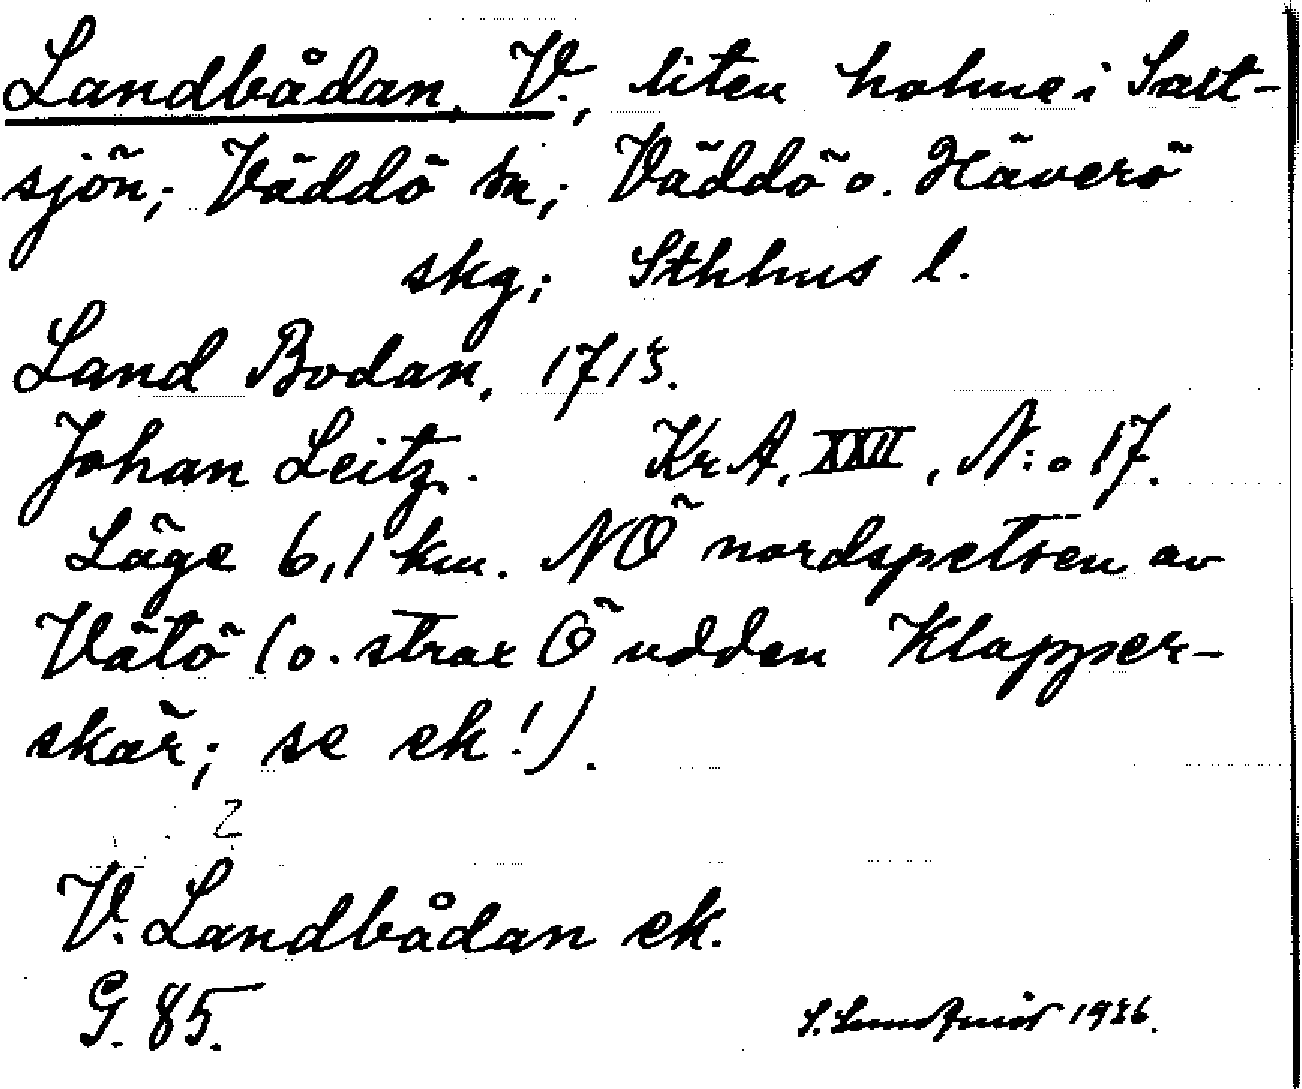 Landbådan, V., liten holme i Salt-
sjön; Väddö sn; Väddö o. Häverö
skg; Sthlms l.
Land Bodan, 1715.
Johan Leitz. Kr A, XXII, N:o 17.
Läge 6,1 km. NÖ nordspetsen av
Vätö (o. strax Ö udden Klapper-
skär; se ek!).
V. Landbådan ek.
G. 85.
1936.